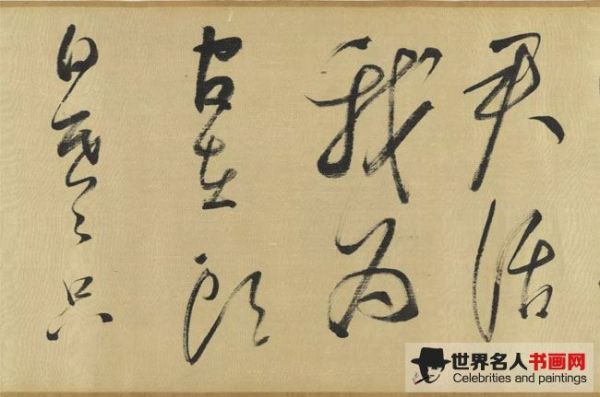 君话
我为
官在头
白昏々只
世界名人书画网
Celebrities and paintings